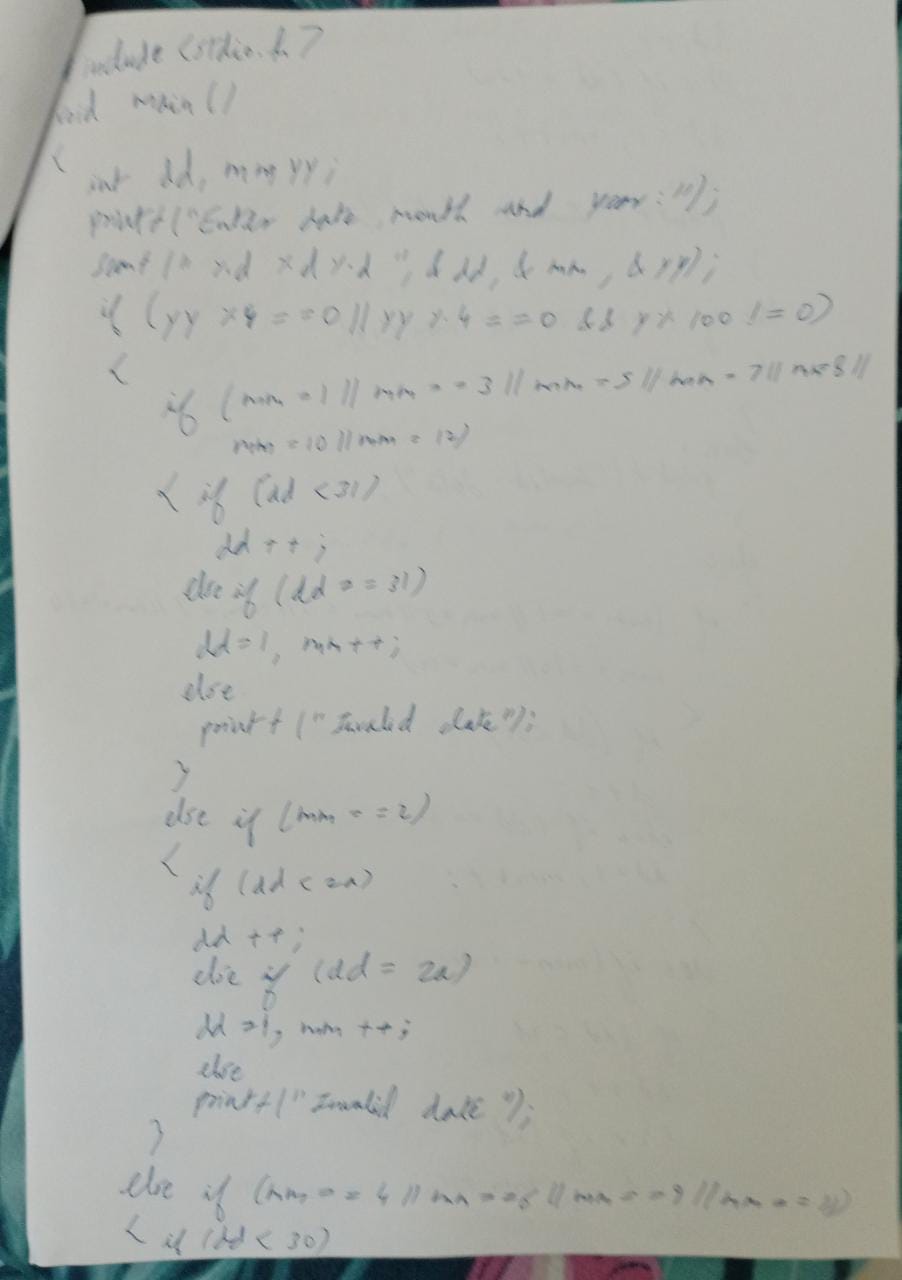 include <stdio.h>
void main()
{
int dd, mm yy;
printf("Enter date month and year:");
scanf(" %d %d %d ", & dd, & mm, & yy);
if (yy %4 ==0 || yy % 4 ==0 && y% 100 !=0)
{
if (mm =1 || mm == 3 || mm =5 || mm = 7 || m=8 ||
mm =10 || mm = 12)
{ if (dd <31)
dd ++;
else if (dd == 31)
dd=1, mm++;
else
printf ("Invalid date");
}
else if (mm ==2)
{
if (dd < 29)
dd ++;
else if (dd = 29)
dd =1, mm ++;
else
printf(" Invalid date ");
}
else if (mm == 4 || mm ==6 || mm ==9 || mm == 11)
{ if (dd < 30)